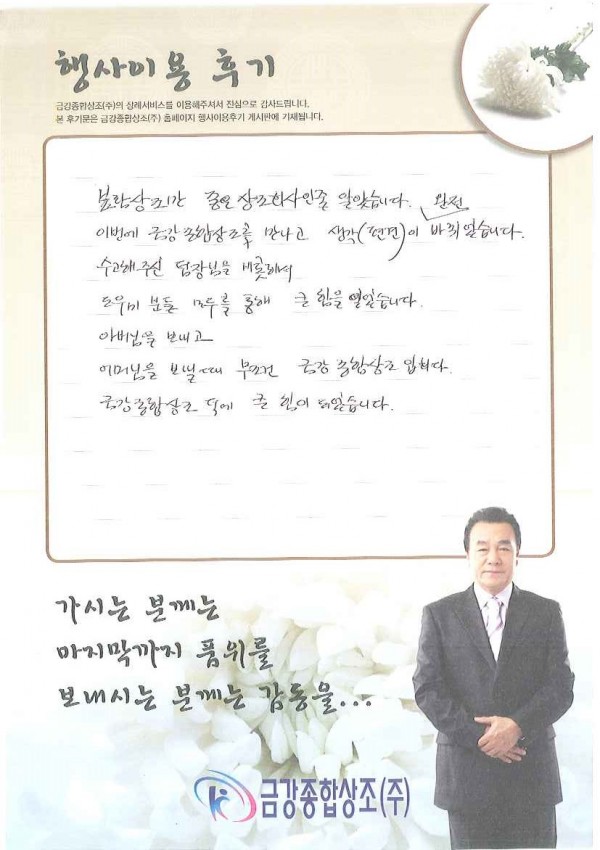 행사이용 후기
금강종합상조(주)의 상례서비스를 이용해주셔서 진심으로 감사드립니다.
본 후기문은 금강종합상조(주) 홈페이지 행사이용후기 게시판에 기재됩니다.
보람상조가 좋은 상조회사인줄 알았습니다.
이번에 금강종합상조를 만나고 생각(편견)이 완전 바뀌었습니다.
수고해주신 팀장님을 비롯해서
도우미 분들 모두를 통해 큰 힘을 얻었습니다.
아버님을 보내고
어머님을 보낼때 무조건 금강종합상조 입니다.
금강종합상조 덕에 큰 힘이 되었습니다.
가시는 분께는
마지막까지 품위를
보내시는 분께는 감동을...
금강종합상조(주)